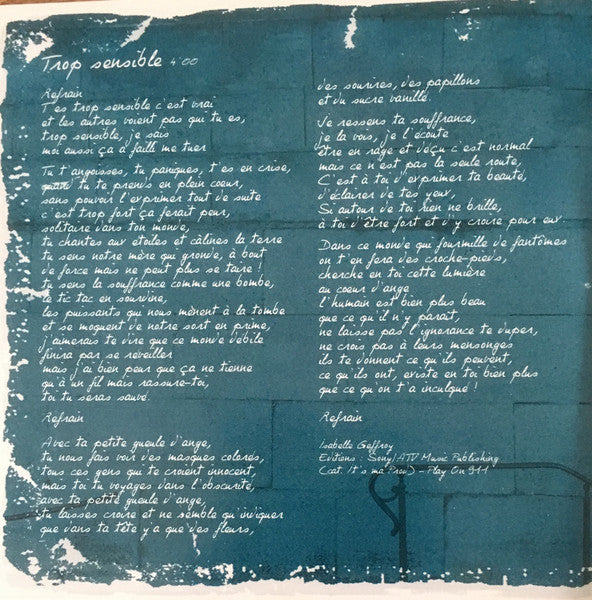 Trop sensible 4'00
Refrain
T'es trop sensible c'est vrai
et les autres voient pas qui tu es,
trop sensible, je sais
moi aussi ça a failli me tuer
Tu t'angoisses, tu paniques, t'es en crise,
quand tu te prends en plein coeur,
sans pouvoir l'exprimer tout de suite
c'est trop fort ça ferait peur,
solitaire dans ton monde,
tu chantes aux étoiles et câlines la terre
tu sens notre mère qui gronde, à bout
de force mais ne peut plus se taire !
tu sens la souffrance comme une bombe,
le tic tac en sourdine,
les puissants qui nous mènent à la tombe
et se moquent de notre sort en prime,
j'aimerais te dire que ce monde débile
finira par se réveiller
mais j'ai bien peur que ça ne tienne
qu'à un fil mais rassure-toi,
toi tu seras sauvé.
Refrain
Avec ta petite gueule d'ange,
tu nous fais voir des masques colorés,
tous ces gens qui te croient innocent,
mais toi tu voyages dans l'obscurité,
avec ta petite gueule d'ange,
tu laisses croire et ne semble qu'indiquer
que dans ta tête y'a que des fleurs,
des sourires, des papillons
et du sucre vanillé.
Je ressens ta souffrance,
je la vois, je l'écoute
être en rage et déçu c'est normal
mais ce n'est pas la seule route,
C'est à toi d'exprimer ta beauté,
d'éclairer de tes yeux,
Si autour de toi rien ne brille,
à toi d'être fort et d'y croire pour eux.
Dans ce monde qui fourmille de fantômes
on t'en fera des croche-pieds,
cherche en toi cette lumière
au coeur d'ange
l'humain est bien plus beau
que ce qu'il n'y parait,
ne laisse pas l'ignorance te duper,
ne crois pas à leurs mensonges
ils te donnent ce qu'ils peuvent,
ce qu'ils ont, existe en toi bien plus
que ce qu'on t'a inculqué !
Refrain
Isabelle Geffroy
Editions : Sony/ATV Music Publishing
(cat. It's ma Prod) - Play On 911